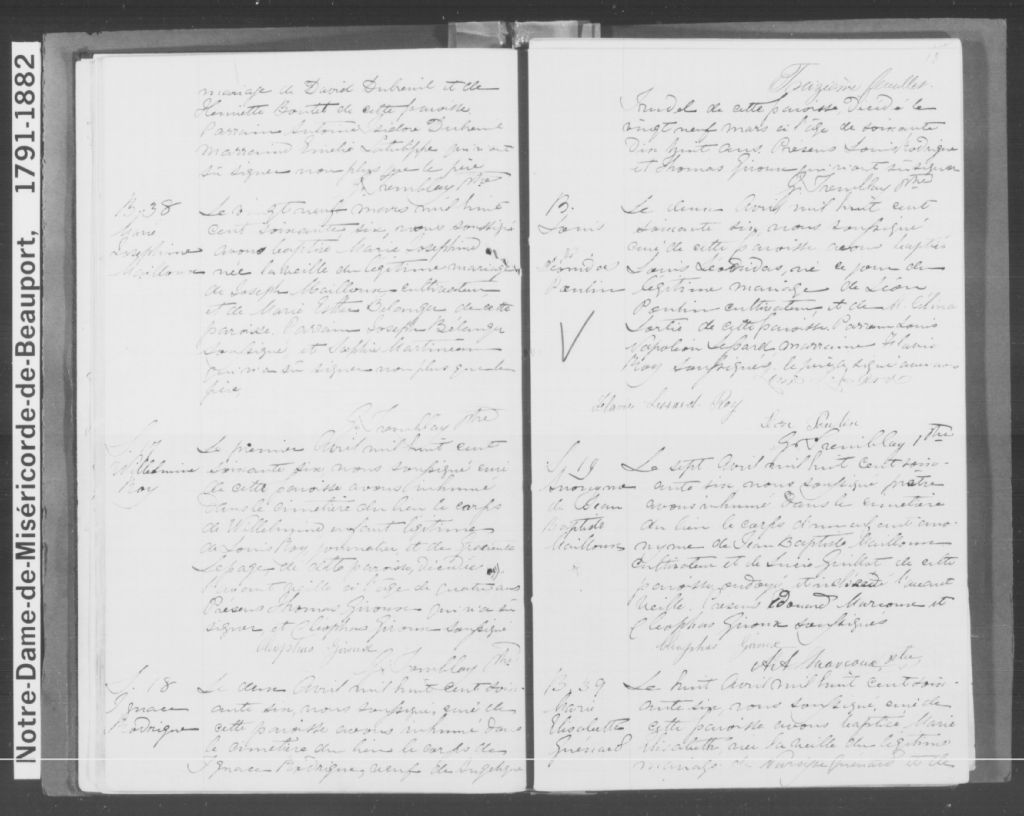 Notre-Dame-de-Miséricorde-de-Beauport, 1791-1882
mariage de David Dubreuil et de
Henriette Boutet de cette paroisse
Parrain Antoine Isidore Dubreuil
marraine Emélie qui n'ont
sû signer non plus que le père
G. Tremblay Ptre
B. 38
Marie
Josephine
Mailloux
Le vingt neuf mars mil huit
cent soixante six, nous soussigné
avons baptisé Marie Josephine
née la veille du légitime mariage
de Joseph Mailloux cultivateur
et de Marie Esther Bélanger de cette
paroisse. Parrain Joseph Bélanger
soussigné et Sophie Martineau
qui n'a sû signer non plus que le
père
G. Tremblay Ptre
S. 17
Willelmine
Roy
Le premier Avril mil huit cent
soixante six nous soussigné curé
de cette paroisse avons inhumé
dans le cimetière du lieu le corps
de Willelmine enfant légitime
de Louis Roy journalier et de
Lepage de cette paroisse, décédée
à l'age de quatre ans
Présens Thomas Giroux qui n'a sû
signer et Cléophas Giroux soussigné
Cléophas Giroux
G. Tremblay Ptre
S. 18
Ignace
Rodrigue
Le deux Avril mil huit cent soix-
ante six, nous soussigné, curé de
cette paroisse avons inhumé dans
le cimetière du lieu le corps de
Ignace Rodrigue, veuf de Angélique
Treizième feuillet.
Trudel de cette paroisse, décédé le
vingt neuf mars à l'âge de soixante
dix huit ans. Présens Louis Rodrigue
et Thomas Giroux qui n'ont sû signer
G. Tremblay Ptre
B.
Louis
Léonidas
Poulin
Le deux Avril mil huit cent
soixante six, nous soussigné
curé de cette paroisse avons baptisé
Louis Léonidas, né ce jour du
légitime mariage de Léon
Poulin cultivateur et de M. Celina
Lortie de cette paroisse. Parrain Louis
Napoléon marraine Flavie
Roy soussignés, le père a signé avec nous
Flavie Lessard Roy
Léon Poulin
G. Tremblay Ptre
S. 19
Anonyme
de Jean
Baptiste
Mailloux
Le sept Avril mil huit cent soix-
ante six nous soussigné prêtre
avons inhumé dans le cimetière
du lieu le corps d'un enfant ano-
nyme de Jean Baptiste Mailloux
cultivateur et de Lucie Guillot de cette
paroisse, ondoyé et décédé l'avant
veille. Présens Edouard Marcoux et
Cléophas Giroux soussignés
Cléophas Giroux
Marcoux, ptre
B. 39
Marie
Elisabeth
Guenard
Le huit Avril mil huit cent soix-
ante six, nous soussigné, curé de
cette paroisse avons baptisé Marie
Elisabeth, née la veille du légitime
mariage de Narcisse Guenard et de